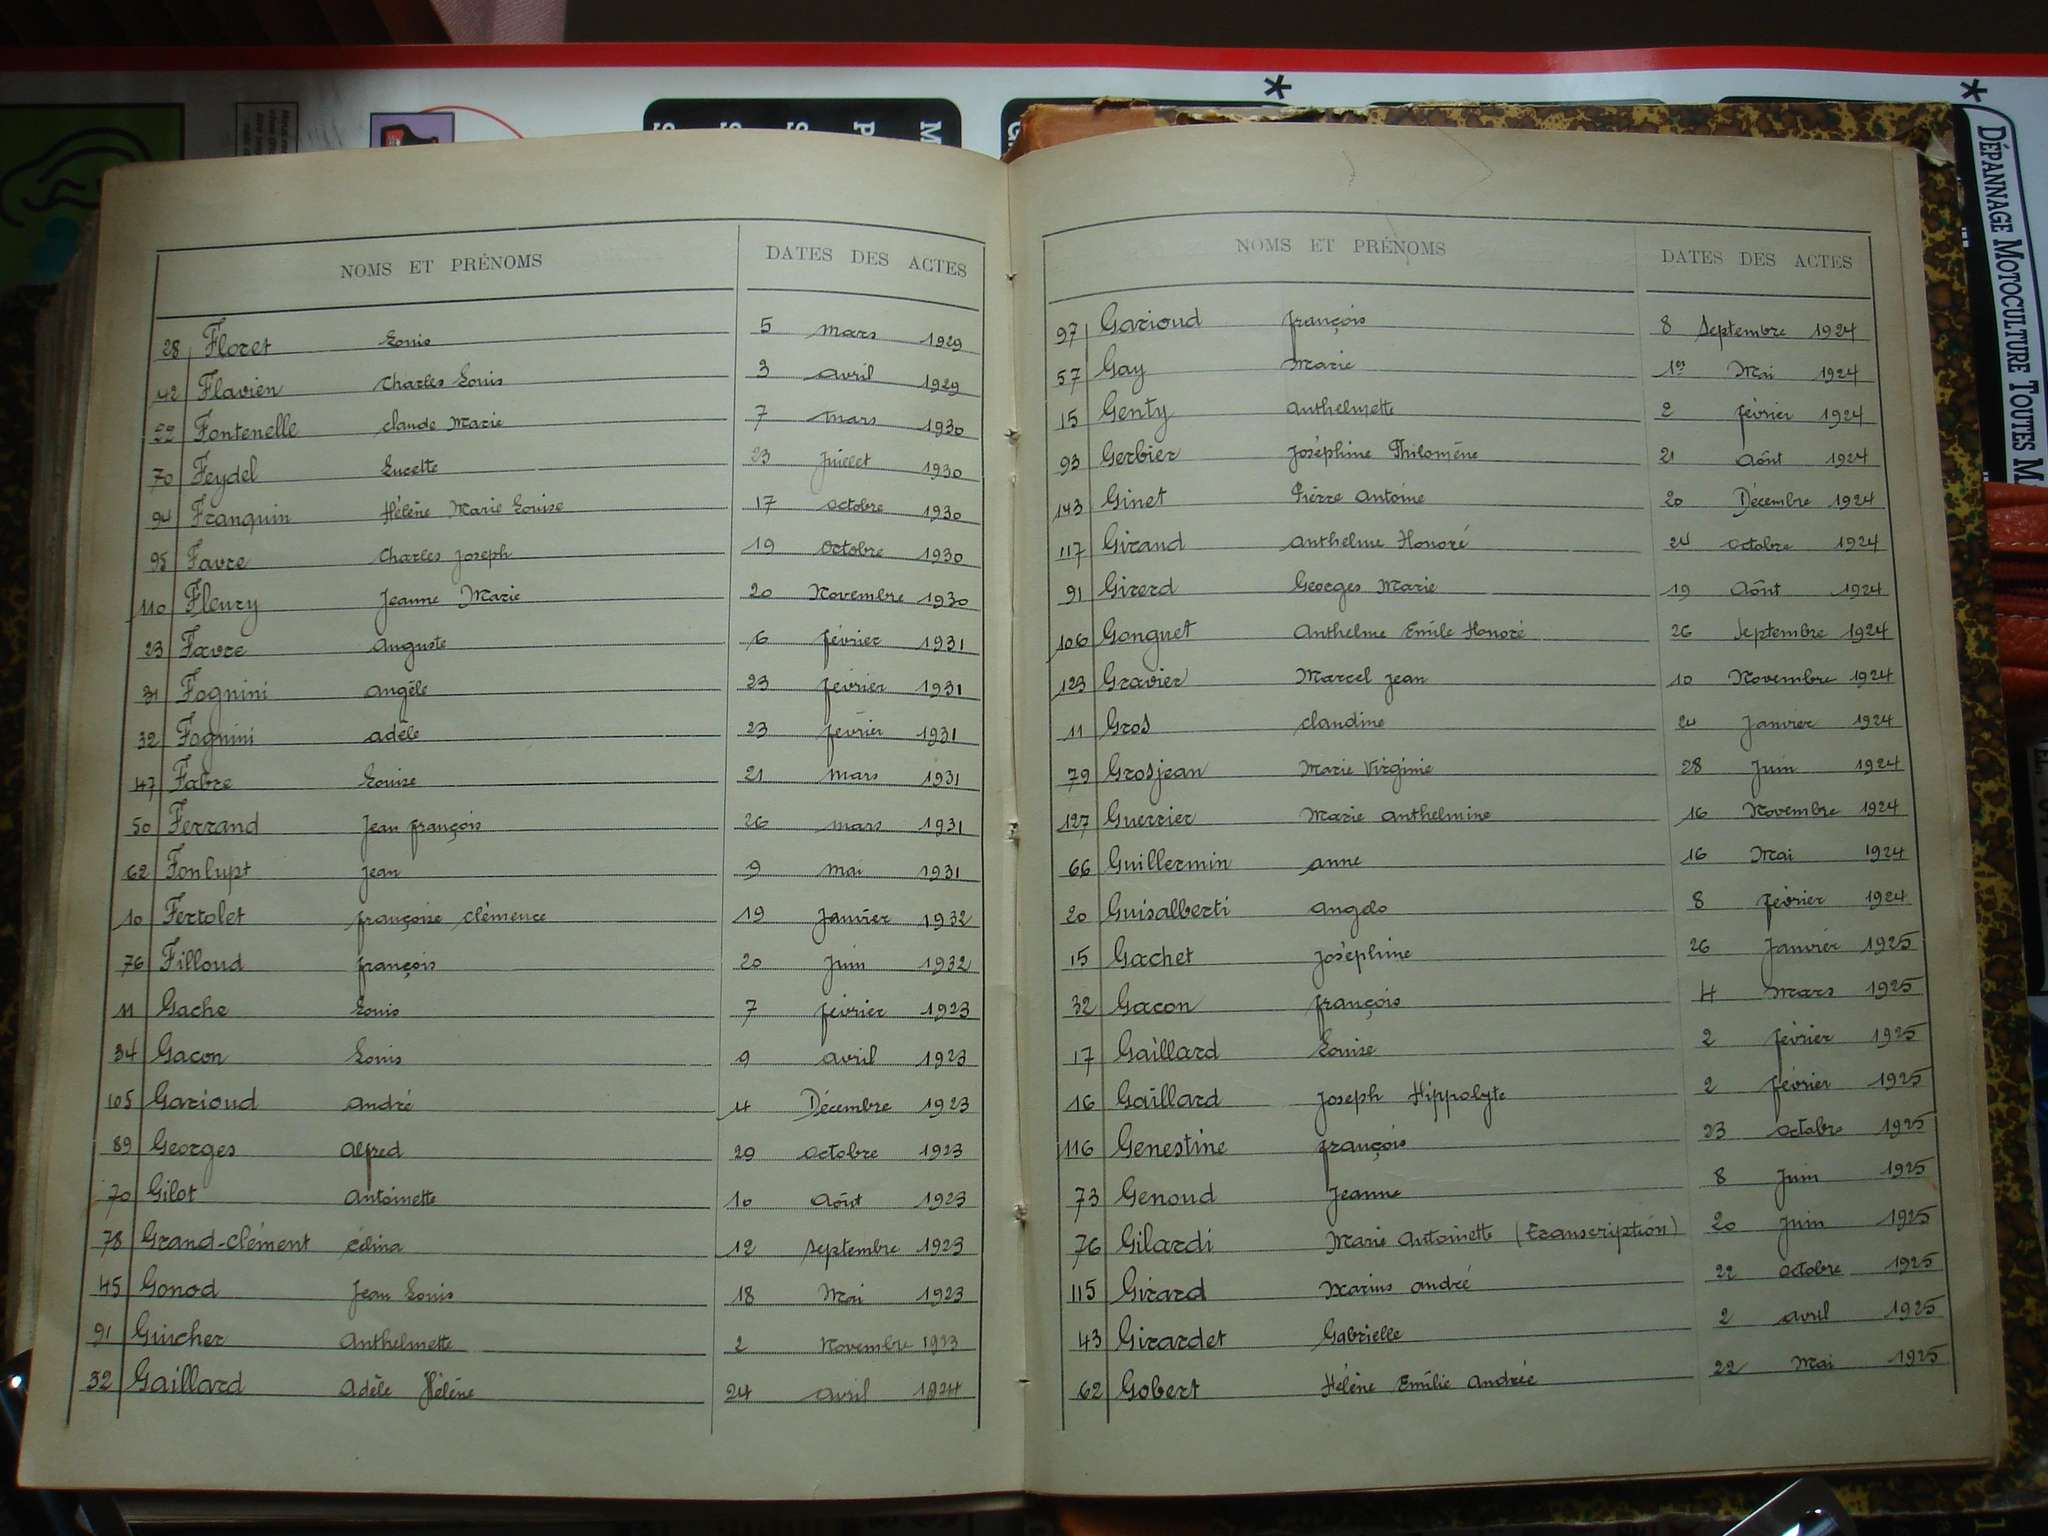 DÉPANNAGE MOTOCULTURE TOUTES M
NOMS ET PRÉNOMS DATES DES ACTES
28 Floret Louis 5 mars 1929
42 Flavien Charles Louis 3 avril 1929
22 Fontenelle claude Marie 7 mars 1930
70 Feydel Lucette 23 Juillet 1930
94 Franquin Hélène Marie Louise 17 octobre 1930
95 Favre Charles Joseph 19 octobre 1930
110 Fleury Jeanne Marie 20 Novembre 1930
23 Favre Auguste 6 février 1931
31 Fognini Angèle 23 février 1931
32 Fognini Adèle 23 février 1931
47 Fabre Louise 21 mars 1931
50 Ferrand Jean françois 26 mars 1931
62 Fonlupt Jean 9 mai 1931
10 Fertolet françoise clémence 19 Janvier 1932
76 Filloud françois 20 Juin 1932
11 Gache Louis 7 février 1923
34 Gacon Louis 9 avril 1923
105 Garioud André 4 Décembre 1923
89 Georges Alfred 29 octobre 1923
70 Gilot Antoinette 10 Août 1923
78 Grand-clément édina 12 Septembre 1923
45 Gonod Jean Louis 18 Mai 1923
91 Guicher Anthelmette 2 Novembre 1923
52 Gaillard Adèle Hélène 24 avril 1924
NOMS ET PRÉNOMS DATES DES ACTES
97 Garioud françois 8 Septembre 1924
57 Gay Marie 1er Mai 1924
15 Genty Anthelmette 2 février 1924
93 Gerbier Joséphine Philomène 21 Août 1924
143 Ginet Pierre Antoine 20 Décembre 1924
117 Giraud Anthelme Honoré 24 octobre 1924
91 Girerd Georges Marie 19 Août 1924
106 Gonguet Anthelme Emile Honoré 26 Septembre 1924
123 Gravier Marcel Jean 10 Novembre 1924
11 Gros claudine 24 Janvier 1924
79 Grosjean Marie Virginie 28 Juin 1924
127 Guerrier Marie Anthelmine 16 Novembre 1924
66 Guillermin Anne 16 Mai 1924
20 Guisalberti Angelo 8 février 1924
15 Gachet Joséphine 26 Janvier 1925
32 Gacon françois 4 Mars 1925
17 Gaillard Louise 2 février 1925
16 Gaillard Joseph Hippolyte 2 février 1925
116 Genestine françois 23 octobre 1925
73 Genoud Jeanne 8 Juin 1925
76 Gilardi Marie Antoinette (Transcription) 20 Juin 1925
115 Girard Marius André 22 octobre 1925
43 Girardet Gabrielle 2 avril 1925
62 Gobert Hélène Emilie Andrée 22 Mai 1925